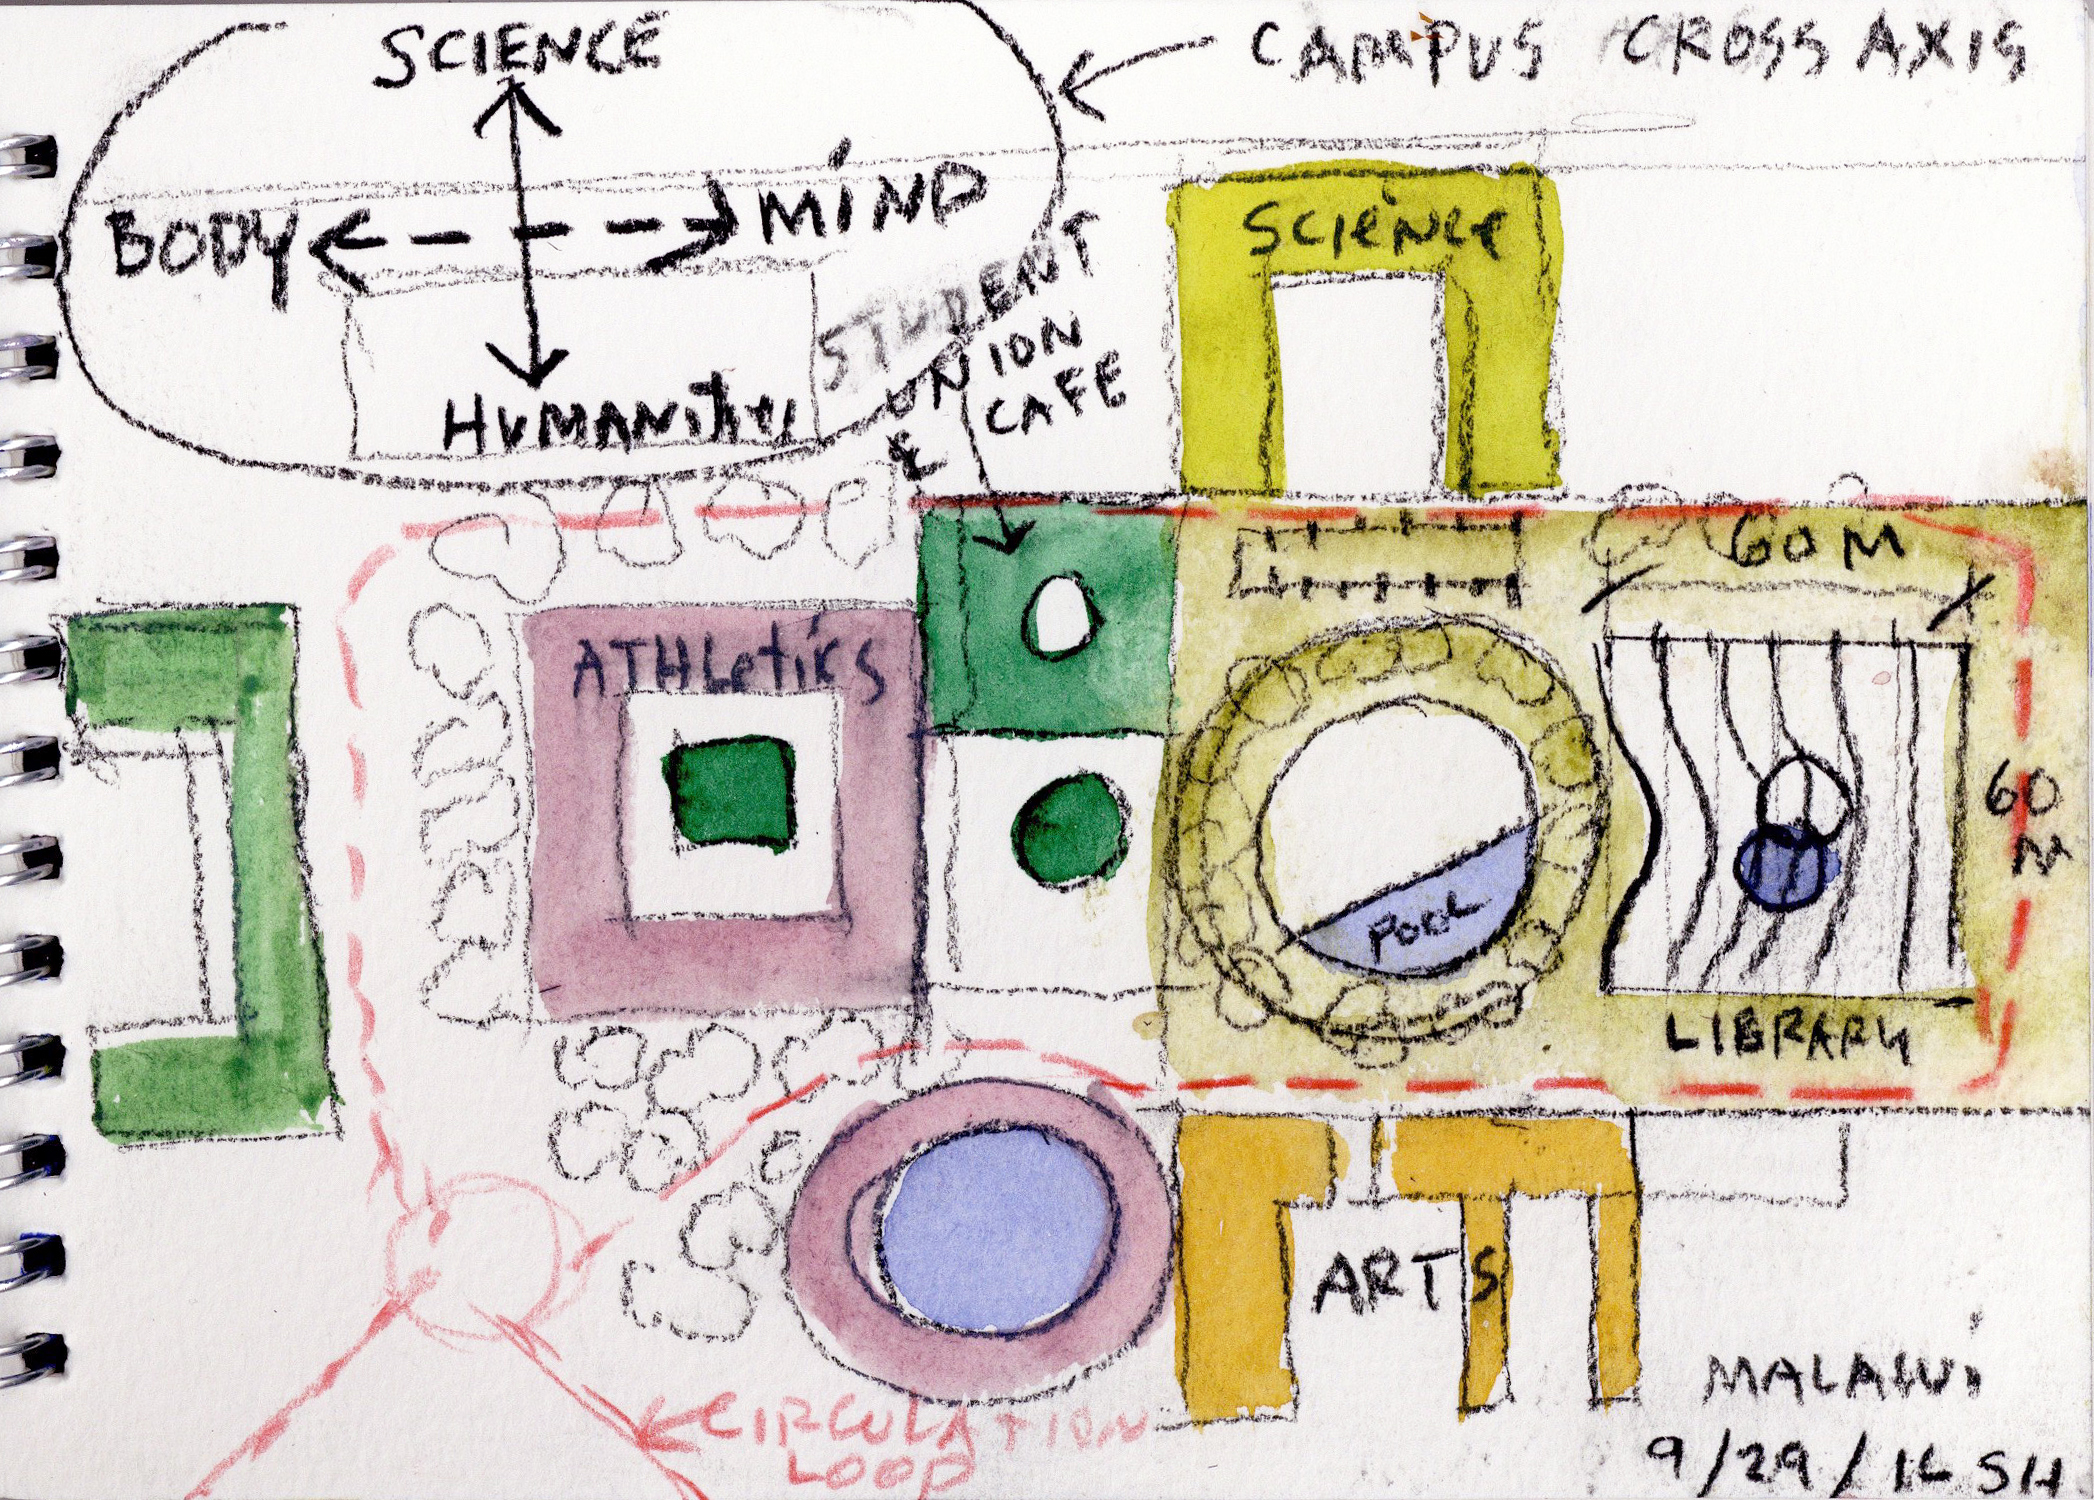 SCIENCE
CAMPUS CROSS AXIS
BODY
MIND
HUMANITIES
STUDENT
UNION
& CAFE
SCIENCE
60 M
ATHLETICS
60
M
POOL
LIBRARY
ARTS
MALAWI
CIRCULATION
LOOP
9/29/16 SH